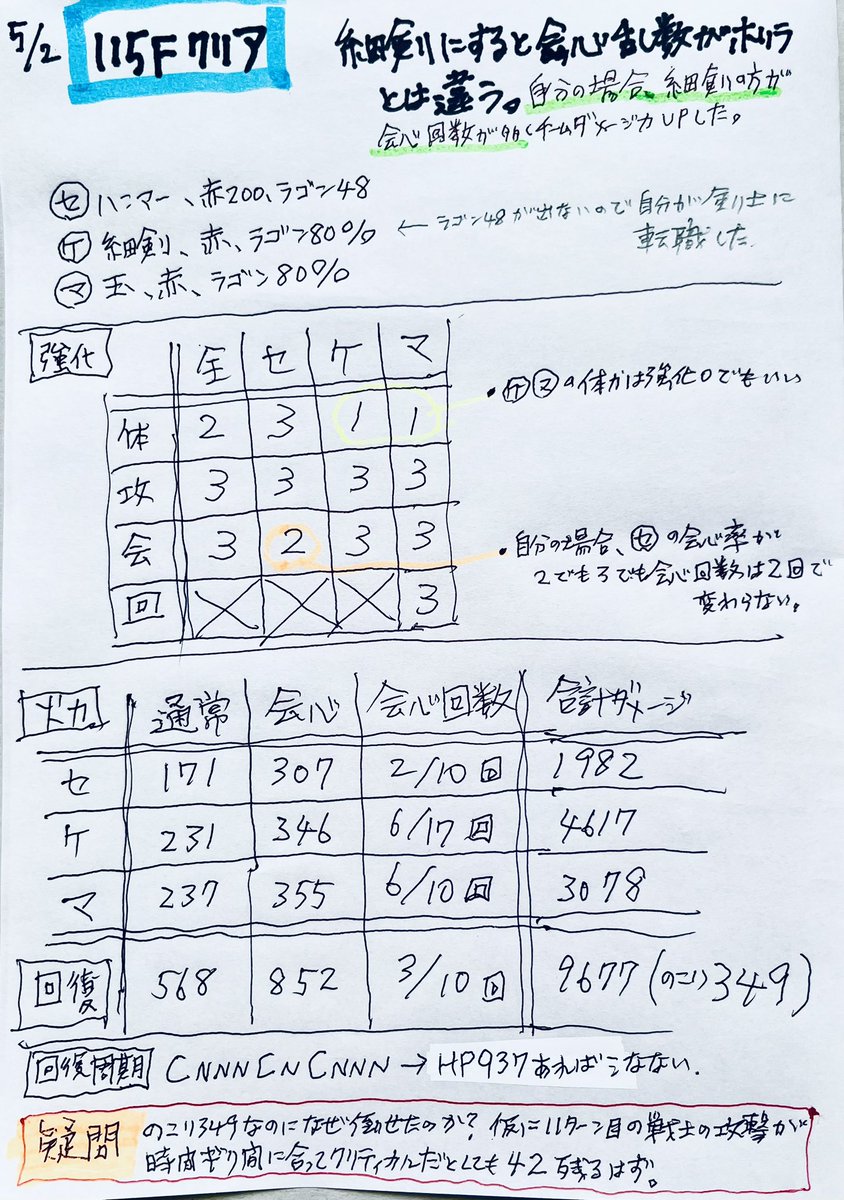 5/2 115Fクリア
細剣にすると会心乱数がポリラ
とは違う。自分の場合、細剣の方が
会心回数が多くチームダメージ力UPした。
セ ハンマー、赤200、ラゴン48
ケ 細剣、赤、ラゴン80% ← ラゴン48が出ないので自分が剣士に
転職した
マ 玉、赤、ラゴン80%
強化 全 セ ケ マ
体 2 3 1 1
・ケマの体力は強化0でもいい
攻 3 3 3 3
会 3 2 3 3
・自分の場合、セの会心率が
2でも3でも会心回数は2回で
変わらない。
回 × × × 3
火力 通常 会心 会心回数 合計ダメージ
セ 171 307 2/10回 1982
ケ 231 346 6/17回 4617
マ 237 355 6/10回 3078
回復 568 852 3/10回 9677(のこり349)
回復周期 CNNNCNCNNN → HP937あればシなない.
疑問 のこり349なのになぜ倒せたのか? 仮に11ターン目の戦士の攻撃が
時間ギリ間に合ってクリティカルだとしても42残るはず。